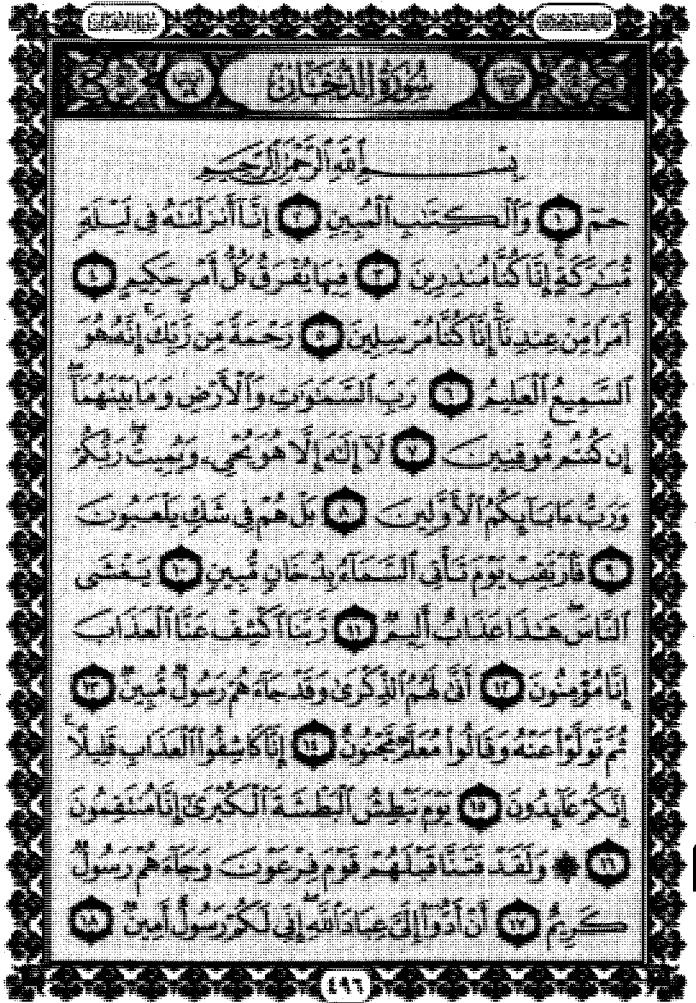 سُورَةُ الدُّخَانِ
بِسْمِ ٱللَّهِ ٱلرَّحْمَٰنِ ٱلرَّحِيمِ
حمٓ ١ وَٱلْكِتَٰبِ ٱلْمُبِينِ ٢ إِنَّآ أَنزَلْنَٰهُ فِى لَيْلَةٍ
مُّبَٰرَكَةٍ إِنَّا كُنَّا مُنذِرِينَ ٣ فِيهَا يُفْرَقُ كُلُّ أَمْرٍ حَكِيمٍ ٤
أَمْرًا مِّنْ عِندِنَآ إِنَّا كُنَّا مُرْسِلِينَ ٥ رَحْمَةً مِّن رَّبِّكَ إِنَّهُۥ هُوَ
ٱلسَّمِيعُ ٱلْعَلِيمُ ٦ رَبِّ ٱلسَّمَٰوَٰتِ وَٱلْأَرْضِ وَمَا بَيْنَهُمَآ
إِن كُنتُم مُّوقِنِينَ ٧ لَآ إِلَٰهَ إِلَّا هُوَ يُحْىِۦ وَيُمِيتُ رَبُّكُمْ
وَرَبُّ ءَابَآئِكُمُ ٱلْأَوَّلِينَ ٨ بَلْ هُمْ فِى شَكٍّ يَلْعَبُونَ
٩ فَٱرْتَقِبْ يَوْمَ تَأْتِى ٱلسَّمَآءُ بِدُخَانٍ مُّبِينٍ ١٠ يَغْشَى
ٱلنَّاسَ هَٰذَا عَذَابٌ أَلِيمٌ ١١ رَّبَّنَا ٱكْشِفْ عَنَّا ٱلْعَذَابَ
إِنَّا مُؤْمِنُونَ ١٢ أَنَّىٰ لَهُمُ ٱلذِّكْرَىٰ وَقَدْ جَآءَهُمْ رَسُولٌ مُّبِينٌ ١٣
ثُمَّ تَوَلَّوْا۟ عَنْهُ وَقَالُوا۟ مُعَلَّمٌ مَّجْنُونٌ ١٤ إِنَّا كَاشِفُوا۟ ٱلْعَذَابِ قَلِيلًا
إِنَّكُمْ عَآئِدُونَ ١٥ يَوْمَ نَبْطِشُ ٱلْبَطْشَةَ ٱلْكُبْرَىٰٓ إِنَّا مُنتَقِمُونَ
١٦ ۞ وَلَقَدْ فَتَنَّا قَبْلَهُمْ قَوْمَ فِرْعَوْنَ وَجَآءَهُمْ رَسُولٌ
كَرِيمٌ ١٧ أَنْ أَدُّوٓا۟ إِلَىَّ عِبَادَ ٱللَّهِ إِنِّى لَكُمْ رَسُولٌ أَمِينٌ ١٨
٤٩٦